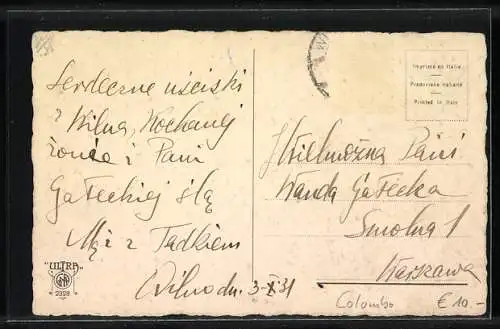 Serdeczne uściski
z Wilna, Kochanej
żonie i Pani
Gałeckiej ślą
Mąż z Tadkiem
Wilno dn. 3-X 31
"ULTRA"
2398
Imprimé en Italie
Produzione Italiana
Printed in Italy
JWielmożna Pani
Wanda Gałecka
Smolna 1
Warszawa
Colombo
€ 10.-